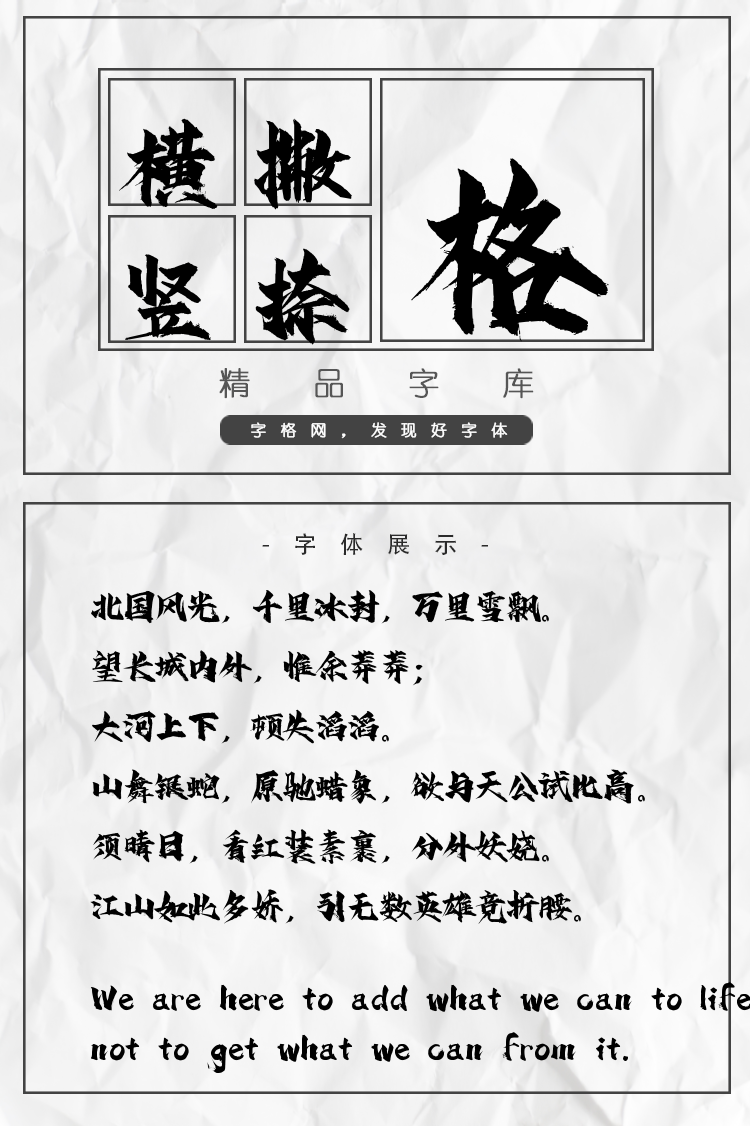 横 撇 格
竖 捺
精品字库
字格网，发现好字体
- 字体展示 -
北国风光，千里冰封，万里雪飘。
望长城内外，惟余莽莽；
大河上下，顿失滔滔。
山舞银蛇，原驰蜡象，欲与天公试比高。
须晴日，看红装素裹，分外妖娆。
江山如此多娇，引无数英雄竞折腰。
We are here to add what we can to life
not to get what we can from it.